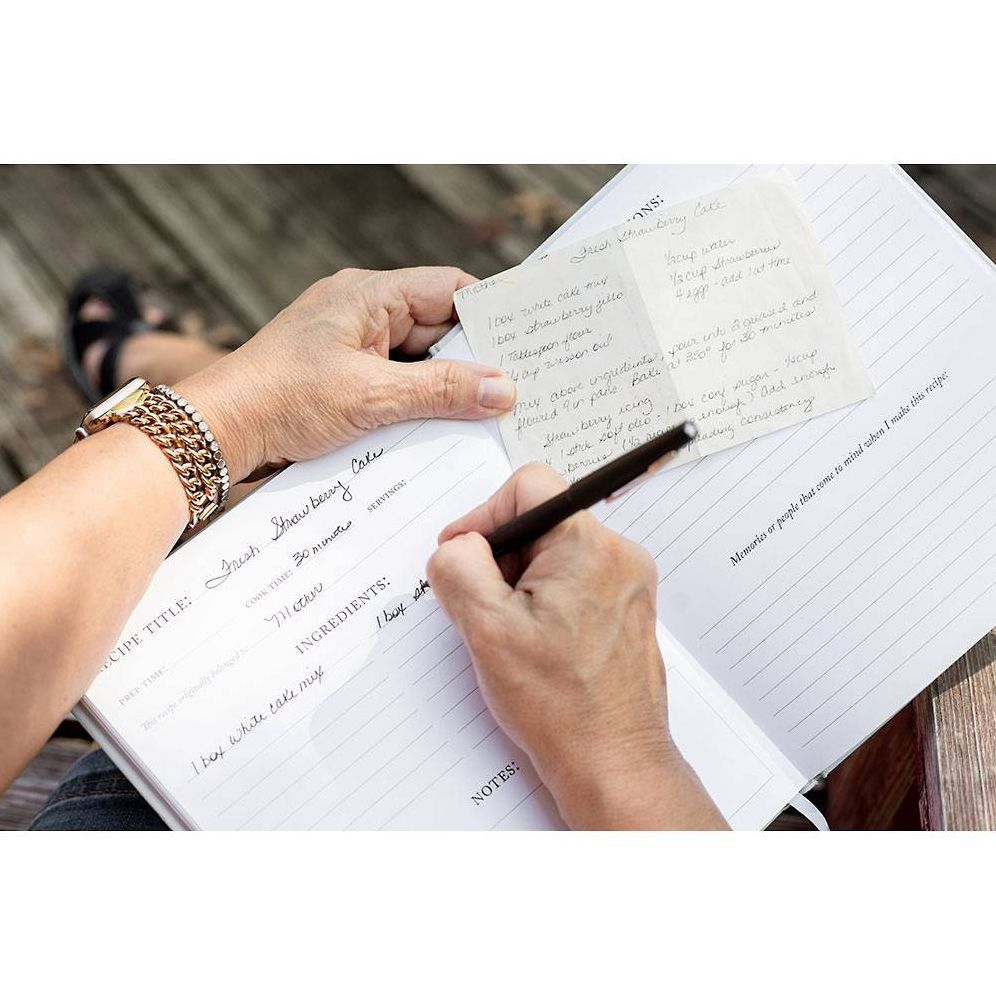 Fresh Strawberry Cake
Mother
1 box white cake mix
1 box strawberry jello
1 Tablespoon flour
cup Wesson oil
½ cup water
½ cup Strawberries
4 eggs - add 1 at time
Mix above ingredients, pour into 2 greased and
floured 9 in pans. Bake at 350° for 30 minutes
Strawberry icing
1 stick soft oleo - 1 box conf sugar - ¼ cup
berries (½ enough) add enough
consistency
RECIPE TITLE: Fresh Strawberry Cake
PREP TIME:
COOK TIME: 30 minutes
SERVINGS:
This recipe originally belonged to: Mother
INGREDIENTS:
1 box white cake mix
1 box
NOTES:
ONS:
Memories or people that come to mind when I make this recipe: